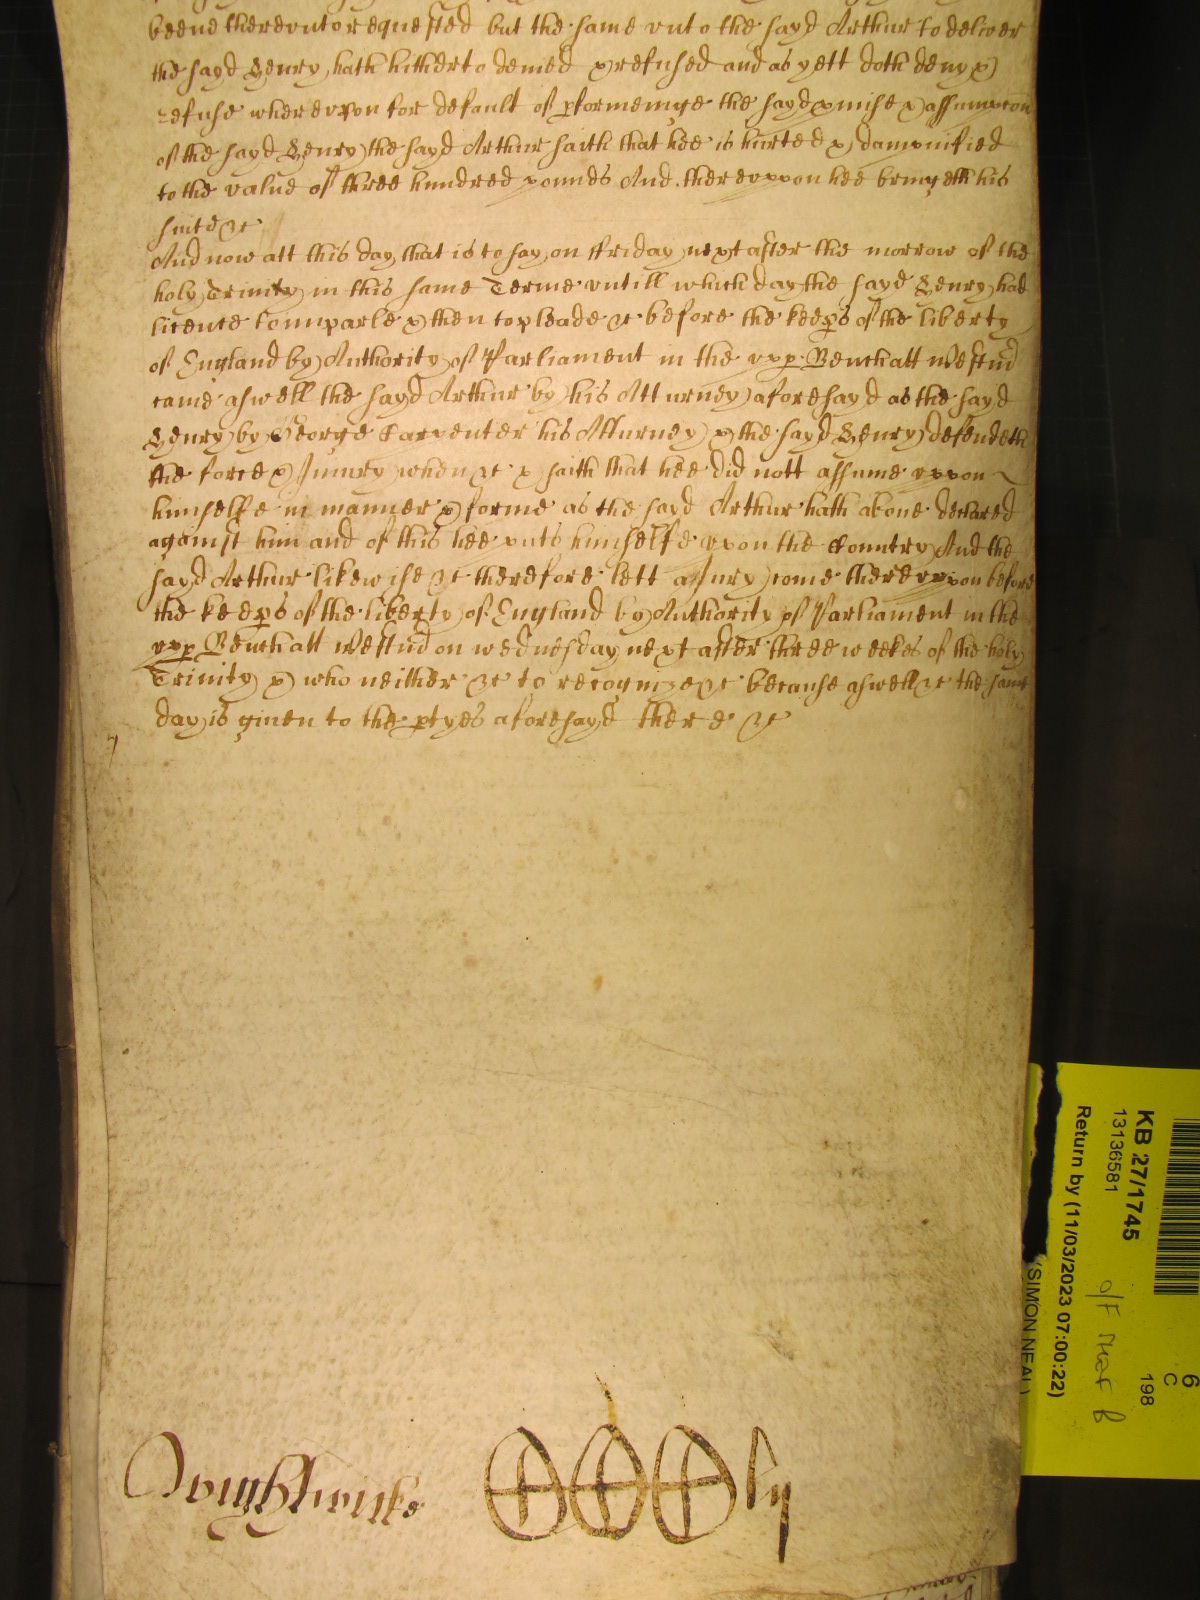 beene therevnto requested but the same vnto the sayd Arthur to deliver
the sayd Henry hath hitherto denied & refused and as yett doth deny &
refuse wherevpon for default of pformeinge the sayd pmise & assumpcon
of the sayd Henry the sayd Arthur saith that hee is hurted & dampnified
to the value of three hundred pounds And therevppon hee bringeth his
suite &c
And now att this day that is to say on ffriday next after the morrow of the
holy Trinity in this same Terme vntill which day the sayd Henry had
licence to imparle & then to pleade &c before the keeps of the liberty
of England by Authority of Parliament in the vpp Bench att Westm
came aswell the sayd Arthur by his Atturney aforesayd as the sayd
Henry by George Carpenter his Atturney & the sayd Henry defendeth
the force & Iniury when &c & saith that hee did nott assume vppon
himselfe in manner & forme as the sayd Arthur hath aboue declared
against him and of this hee puts himselfe vpon the Country And the
sayd Arthur likewise &c therefore lett a Jury come therevppon before
the keeps of the liberty of England by Authority of Parliament in the
vpp Bench att Westm on wednesday next after three weekes of the holy
Trinity & who neither &c to recognize &c because aswell &c the same
day is giuen to the ptyes aforesayd there &c
KB 27/1745
13136581
Return by (11/03/2023 07:00:22)
(SIMON NEAL)
198
C
6